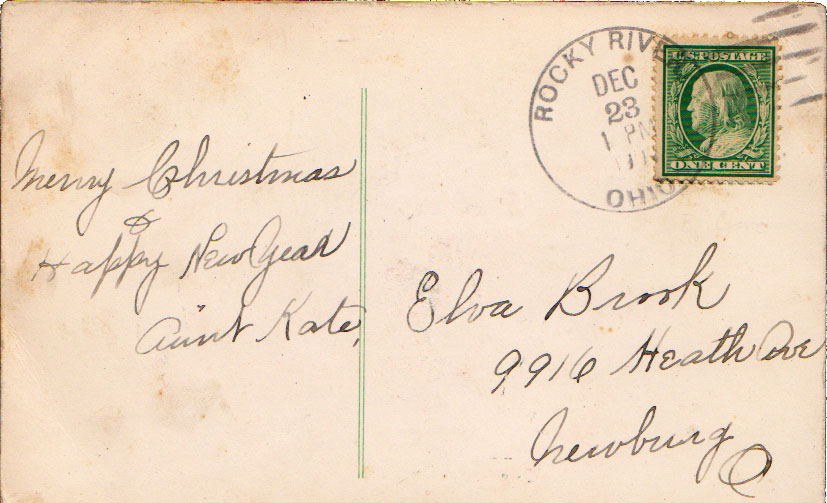 ROCKY RIVER
DEC
23
1 PM
OHIO
U.S. POSTAGE
ONE CENT
Merry Christmas
&
Happy New Year
Aunt Kate,
Elva Brook
9916 Heath Ave
Newburg
O